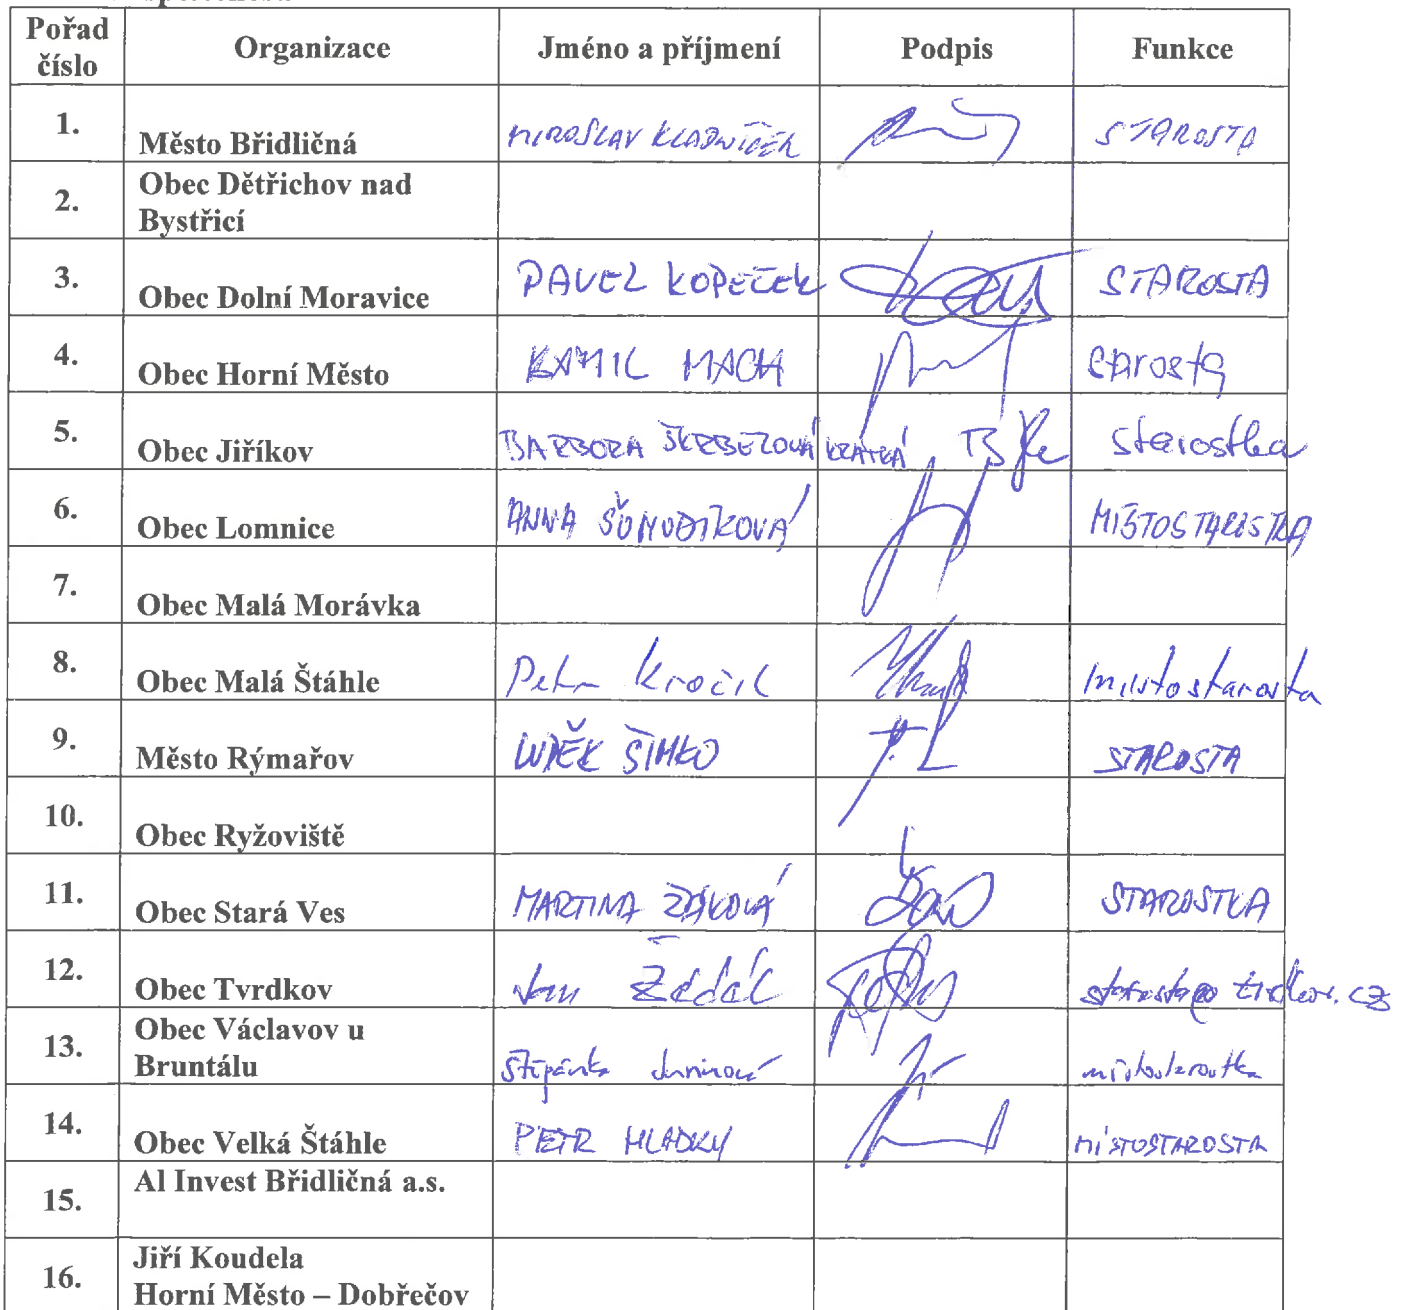 Pořad číslo Organizace Jméno a příjmení Podpis Funkce
1. Město Břidličná MIROSLAV KLADNÍČEK STAROSTA
2. Obec Dětřichov nad
Bystřicí
3. Obec Dolní Moravice PAVEL KOPEČEK STAROSTA
4. Obec Horní Město KAMIL MACH starosta
5. Obec Jiříkov BARBORA ŠKRBEZOVÁ KRATKÁ starostka
6. Obec Lomnice ANNA MÍSTOSTAROSTKA
7. Obec Malá Morávka
8. Obec Malá Štáhle Petr Kročil místostarosta
9. Město Rýmařov LUDĚK ŠIMKO STAROSTA
10. Obec Ryžoviště
11. Obec Stará Ves MARTINA ŽÁKOVÁ STAROSTKA
12. Obec Tvrdkov Jan
13. Obec Václavov u
Bruntálu Štěpánka místostarostka
14. Obec Velká Štáhle PETR HLADKÝ MÍSTOSTAROSTA
15. Al Invest Břidličná a.s.
16. Jiří Koudela
Horní Město – Dobřečov